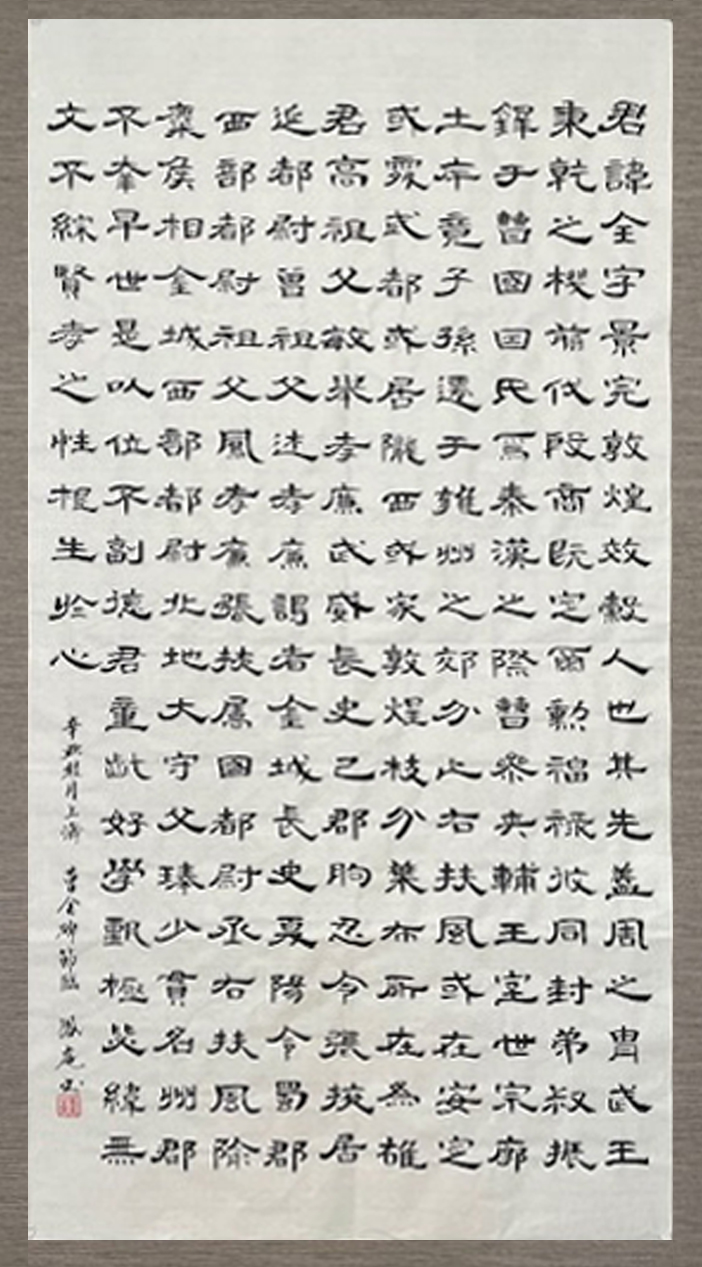 君諱全字景完敦煌效穀人也其先蓋周之冑武王
秉乾之機翦伐殷商既定爾勳福祿攸同封弟叔振
鐸于曹國因氏焉秦漢之際曹參夾輔王室世宗廓
土斥竟子孫遷于雍州之郊分止右扶風或在安定
或處武都或居隴西或家敦煌枝分葉布所在為雄
君高祖父敏舉孝廉武威長史巴郡朐忍令張掖居
延都尉曾祖父述孝廉謁者金城長史夏陽令蜀郡
西部都尉祖父鳳孝廉張掖屬國都尉丞右扶風隃
麋侯相金城西部都尉北地大守父琫少貫名州郡
不幸早世是以位不副德君童齔好學甄極毖緯無
文不綜賢孝之性根生於心
月上澣